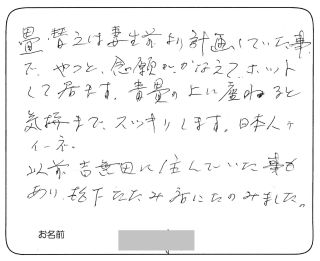 畳替えは妻生前より計画していた事
で、やっと、念願がかなえて、ホット
して居ます。青畳の上に座ねると
気持まで、スッキリします。日本人っ
イーネ。
以前吉無田に住んでいた事が
あり、松下たたみ店にたのみました。
お名前